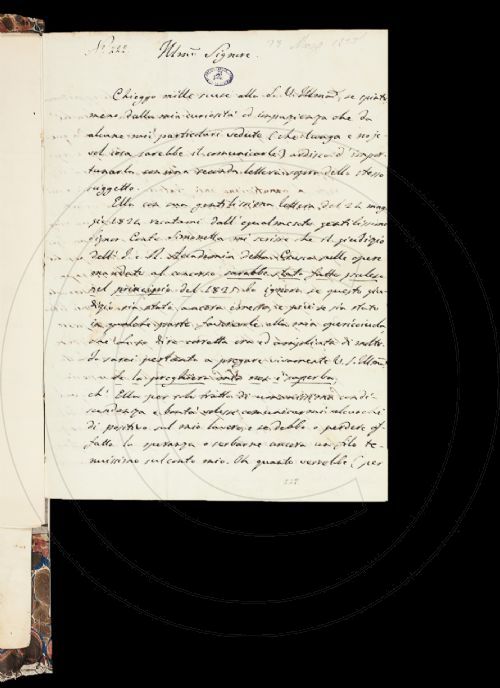 N.° 222. Illmo Signore.
Chieggo mille scuse alla S. V. Illma, se spinto
meno dalla mia curiosità ed impazienza che da
alcune mie particolari vedute (che lunga e noje-
vol cosa sarebbe il comunicarle) ardisco d'impor-
tunarla con una seconda lettera sopra dello stesso
suggetto.
Ella con una gentilissima lettera del 24 mag-
gio 1824 recatami dall' egualmente gentilissimo
Signor Conte Simonetta mi scrisse che il giudizio
dell' I. e R. Accademia della Crusca sulle opere
mandate al concorso sarebbe stato fatto palese
nel principio del 1825. Io ignoro se questo giu-
dizio sia stato ancora emesso, e poi se sia stato
in qualche parte favorevole alla mia opericciuola,
ora corretta ed ampliata di molto.
Io sarei pertanto a pregare vivamente V. S. Illma,
se la preghiera mia non è superba,
ch' Ella per sola tratto di condi-
scendenza e bontà volesse comunicarmi alcunchè
di positivo sul mio lavoro, e se debbo o perdere af-
fatto la speranza o serbarne ancora un filo te-
nuissimo sul conto mio. Oh quanto vorrebbe (per
222